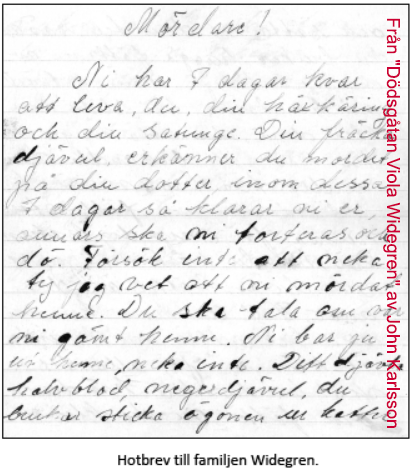 Mördare!
Ni har 7 dagar kvar
att leva, du, din häxkäring
och din satunge. Din fräcka
djävul, erkänner du mordet
på din dotter, inom dessa
7 dagar så klarar ni er,
annars ska ni torteras och
dö. Försök inte att neka
ty jag vet att ni mördat
henne. Du ska tala om var
ni gömt henne. Ni bar ju
ut henne, neka inte. Ditt djävla
halvblod, negerdjävul, du
brukar sticka ögonen ur katter
Från "Dödsgåtan Viola Widegren" av John Karlsson
Hotbrev till familjen Widegren.